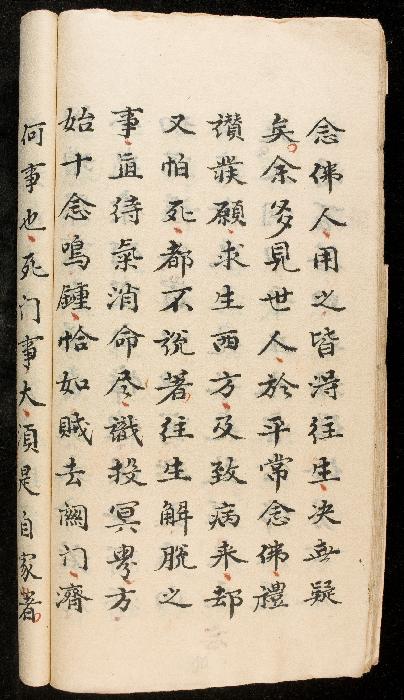 念佛人用之皆得往生决无疑
矣余多見世人於平常念佛禮
讃發願求生西方及致病来却
又怕死都不說著往生解脫之
事直待氣消命尽識投冥界方
始十念鳴鍾恰如賊去関门濟
何事也死门事大須是自家着